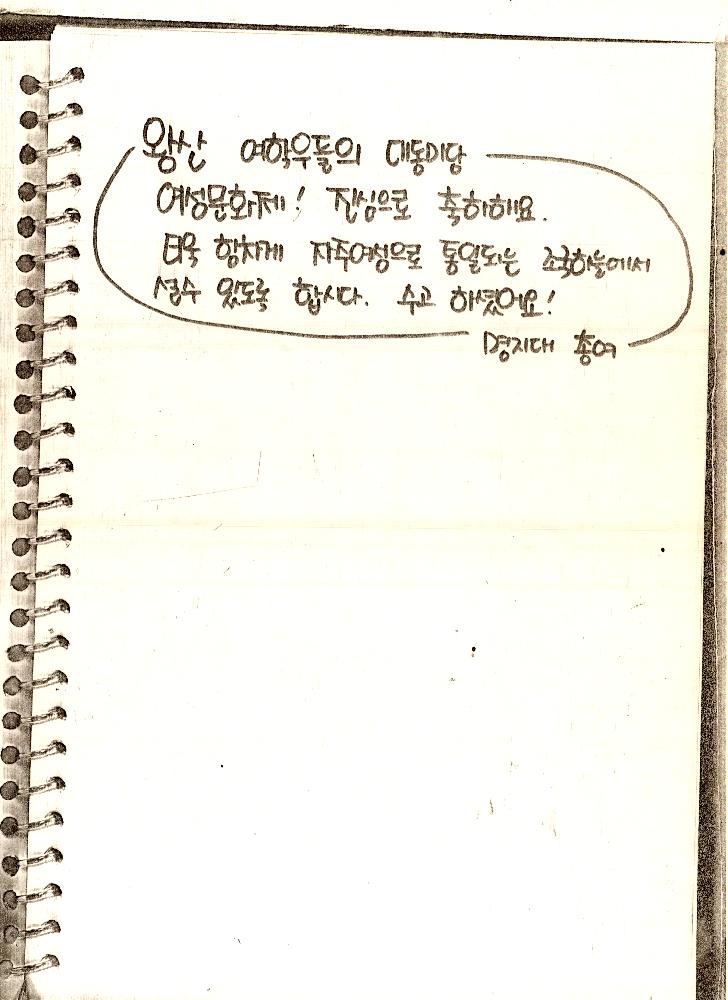 왕산 여학우들의 대동마당
여성문화제! 진심으로 축하해요.
더욱 힘차게 자주여성으로 통일되는 조국하늘에서
설수 있도록 합시다. 수고 하셨어요!
명지대 총여